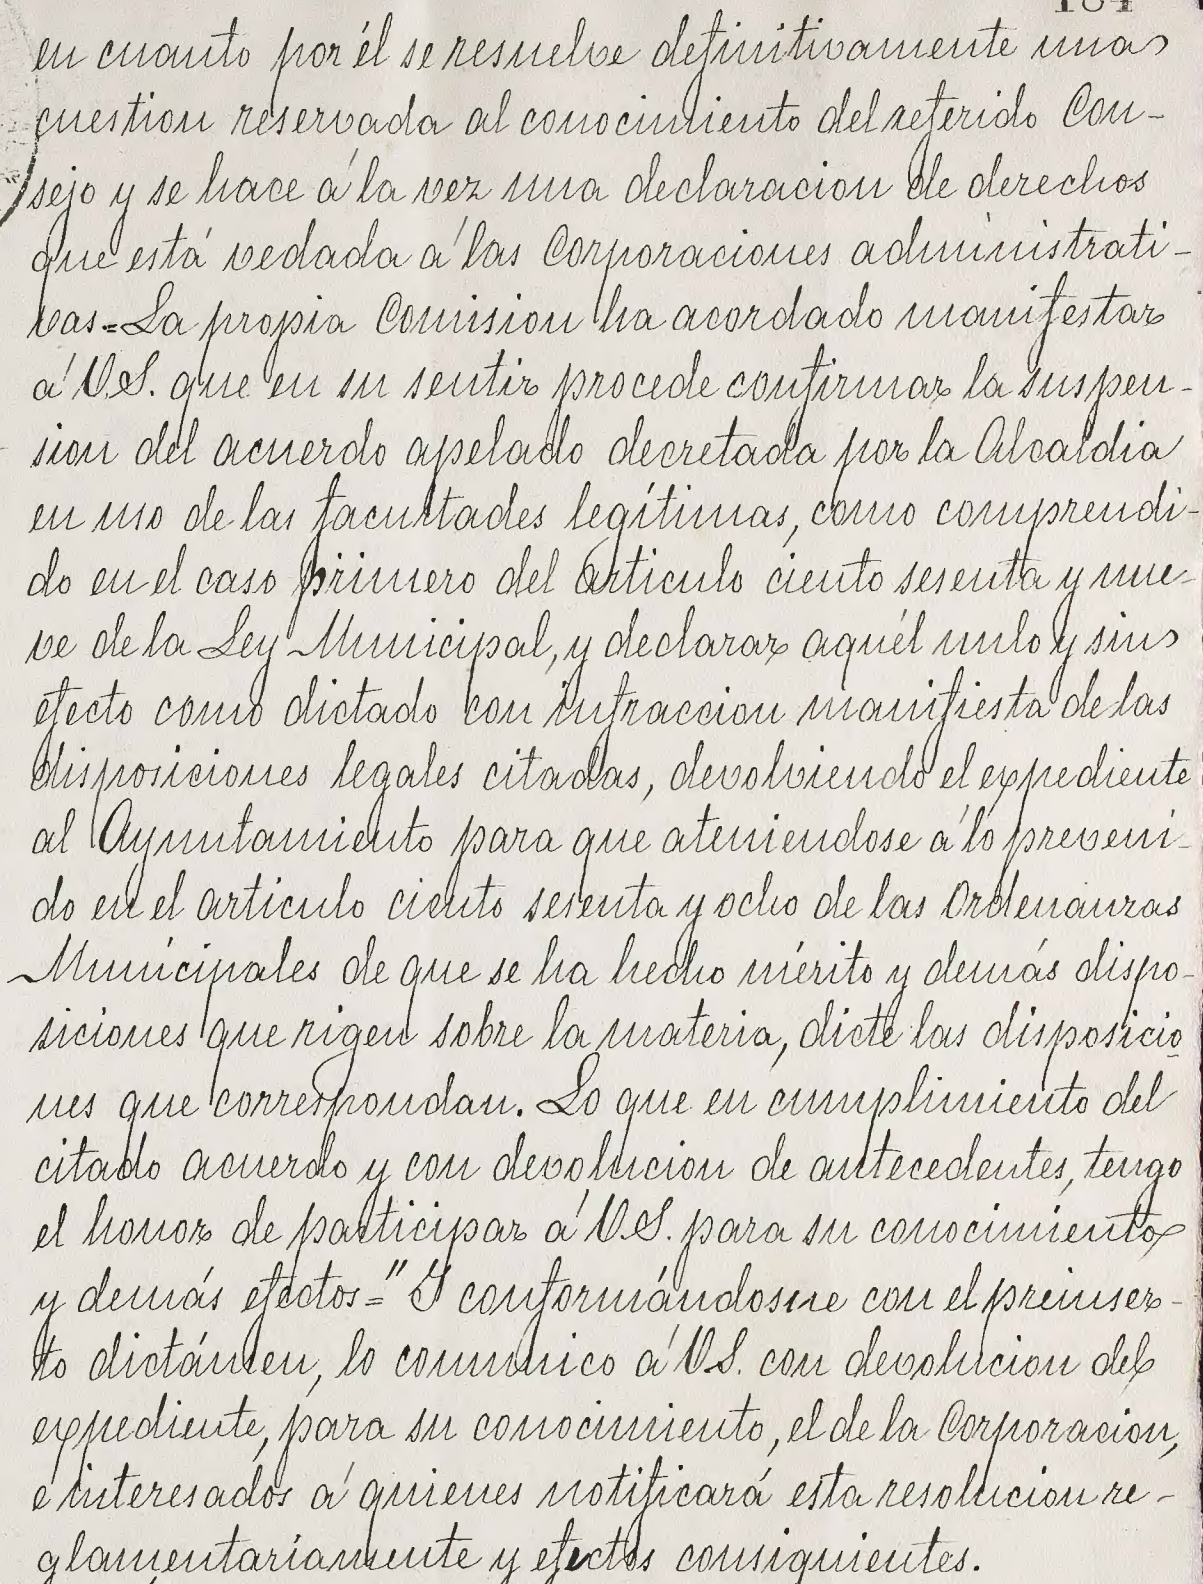 184
en cuanto por él se resuelve definitivamente una
cuestion reservada al conocimiento del referido Con-
sejo y se hace á la vez una declaracion de derechos
que está vedada á las Corporaciones administrati-
vas.=La propia Comision ha acordado manifestar
á V.S. que en su sentir procede confirmar la suspen-
sion del acuerdo apelado decretada por la Alcaldia
en uso de las facultades legítimas, como comprendi-
do en el caso primero del articulo ciento sesenta y nue-
ve de la Ley Municipal, y declarar aquél nulo y sin
efecto como dictado con infraccion manifiesta de las
disposiciones legales citadas, devolviendo el expediente
al Ayuntamiento para que ateniendose á lo preveni-
do en el articulo ciento sesenta y ocho de las Ordenanzas
Municipales de que se ha hecho mérito y demás dispo-
siciones que rigen sobre la materia, dicte las disposicio
nes que correspondan. Lo que en cumplimiento del
citado acuerdo y con devolucion de antecedentes, tengo
el honor de participar á V.S. para su conocimiento
y demás efectos=" Y conformándome con el preinser-
to dictámen, lo comunico á V.S. con devolucion del
expediente, para su conocimiento, el de la Corporacion,
é interesados á quienes notificará esta resolucion re-
glamentariamente y efectos consiguientes.